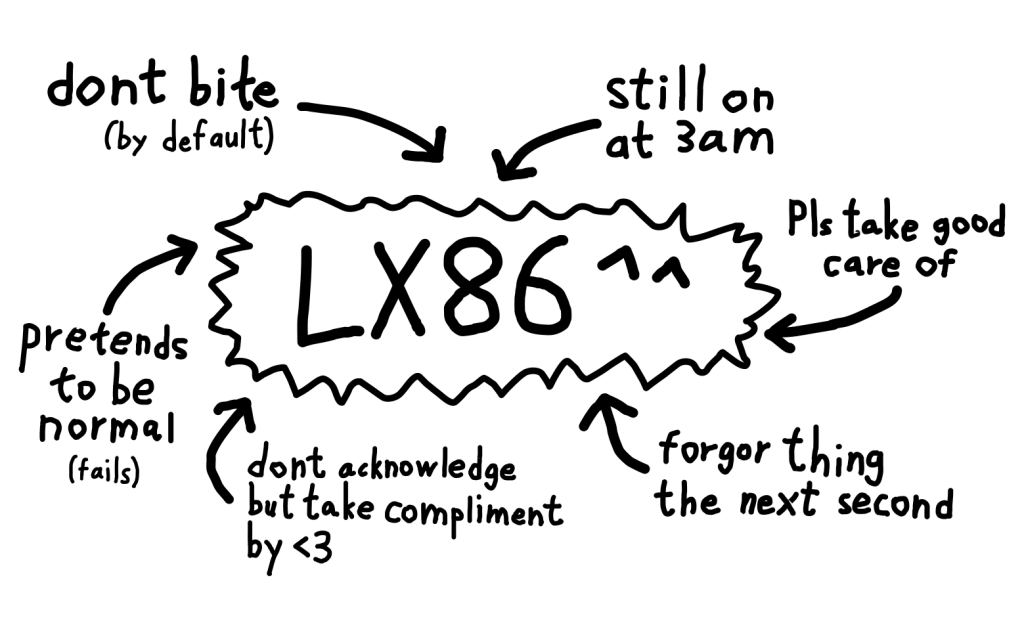 dont bite
(by default)
still on
at 3am
Pls take good
care of
LX86 ^^
pretends
to be
normal
(fails)
dont acknowledge
but take compliment
by <3
forgor thing
the next second